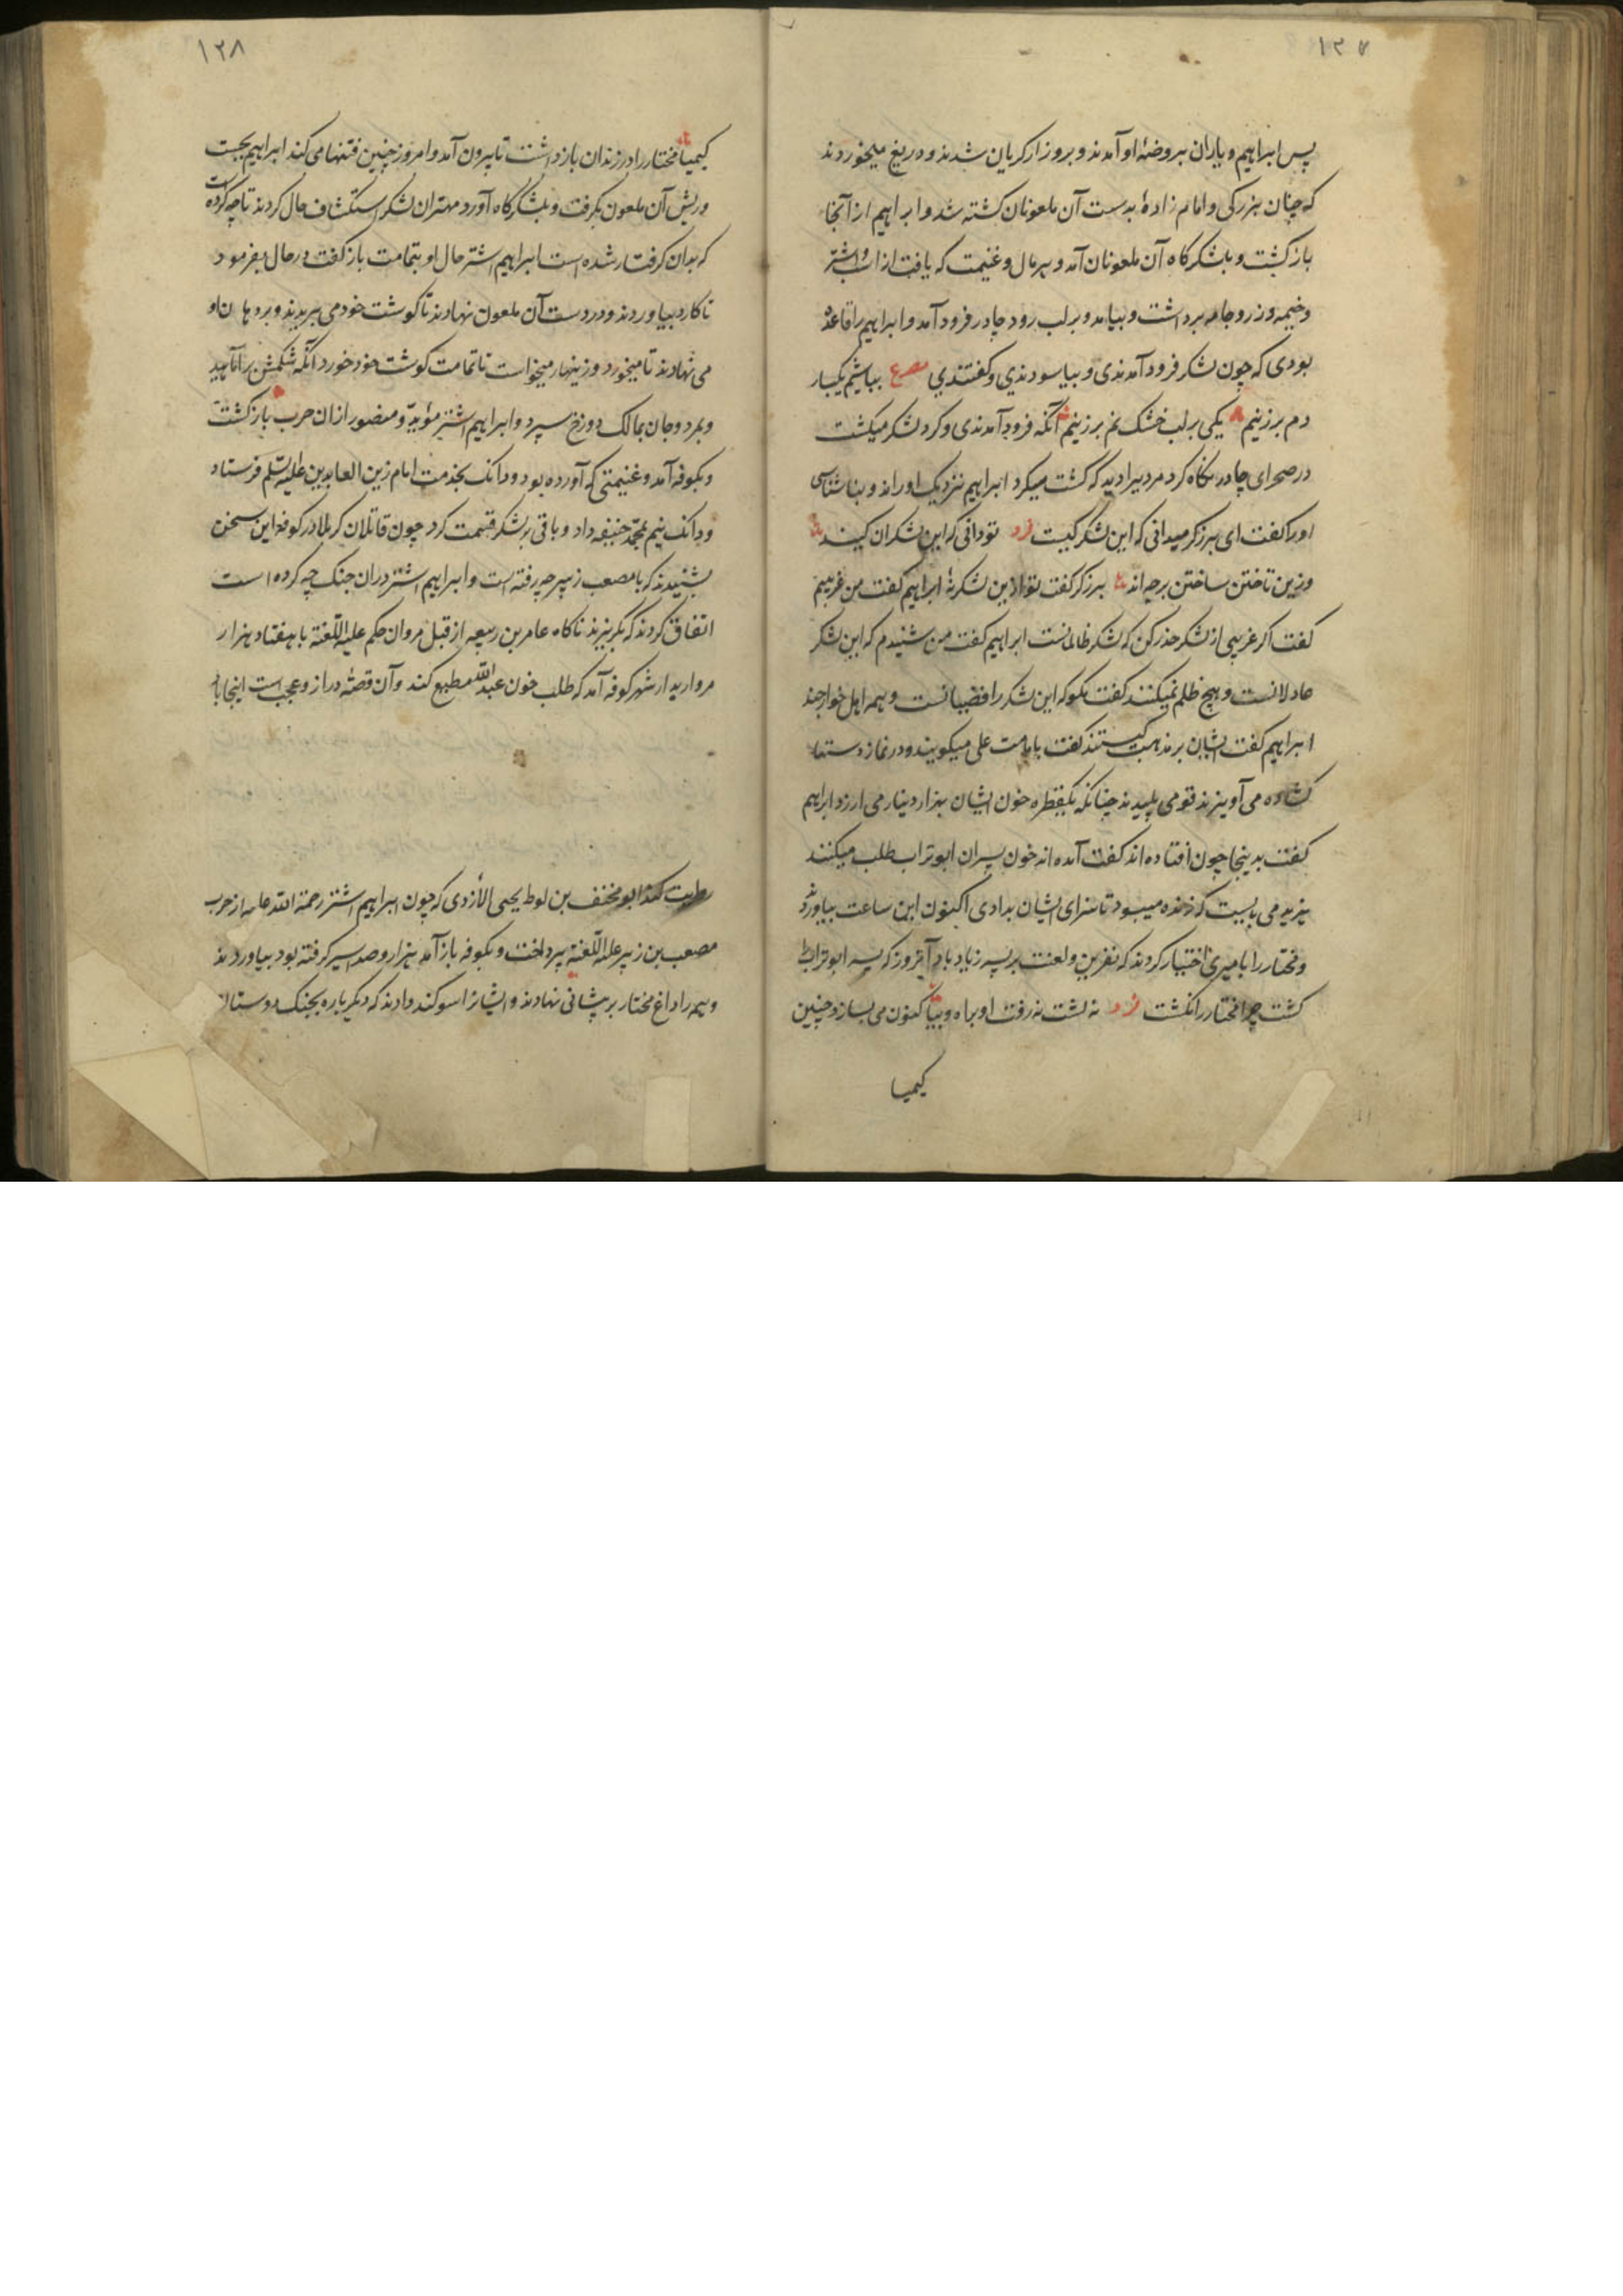 ۱۲۷
پس ابراهیم و یاران بروضهٔ او آمدند و بروزار گریان شدند و دریغ میخوردند
که چنان بزرگی و امام زادهٔ بدست آن ملعونان کشته شد و ابراهیم از آنجا
بازگشت و بلشکرگاه آن ملعونان آمد و هر مال و غنیمت که یافت از اسب و اشتر
و خیمه و زر و جامه برداشت و بیامد و بر لب رود چادر فرود آمد و ابراهیم را قاعدهٔ
بودی که چون لشکر فرود آمدندی و بیاسودندی و گفتندی مصرع بباشیم یکبار
دم برزنیم یکی بر لب خشک نم برزنیم آنگه فرود آمدندی و گرد لشکر میگشت
در صحرای چادر نگاه کرد مردیرا دید که کشت میکرد ابراهیم نزدیک او راند و بناشناسی
او را گفت ای برزگر میدانی که این لشکر کیست فرد تو دانی که این لشکران کیند
وزین تاختن ساختن برچه اند برزگر گفت تو ازین لشکر نهٔ ابراهیم گفت من غریبم
گفت اگر غریبی از لشکر حذر کن که لشکر ظالمانست ابراهیم گفت من شنیدم که این لشکر
عادلانست و هیچ ظلم نمیکنند گفت مگو که این لشکر رافضیانست و همه اهل خوارجند
ابراهیم گفت ایشان بر مذهب کیستند گفت بامامت علی میگویند و در نماز دستها
گشاده می آویزند قومی پلیدند چنانکه یکقطره خون ایشان بهزار دینار می ارزد ابراهیم
گفت بدینجا چون افتاده اند گفت آمده اند خون پسران ابوتراب طلب میکنند
یزید می بایست که زنده میبود تا سزای ایشان بدادی اکنون این ساعت بیاوردند
و مختار را بامیری اختیار کردند که نفرین و لعنت بر پسر زیاد باد آنروز که پسر ابوتراب را
کشت چرا مختار را نکشت فرد نه کشت نه رفت او براه وبیا کنون می بسازد چنین
کیمیا
۱۲۸
کیمیا مختار را در زندان بازداشت تا بیرون آمد و امروز چنین فتنها می کند ابراهیم بجست
و ریش آن ملعون بگرفت و بلشکرگاه آورد مهتران لشکر استکشاف حال کردند تا چه کرده است
که بدان گرفتار شده است ابراهیم اشتر حال او بتمامت بازگفت در حال بفرمود
تا کارد بیاوردند و در دست آن ملعون نهادند تا گوشت خود می برید و بر دهان او
می نهادند تا میخورد و زینهار میخواست تا تمامت گوشت خود خورد آنگه شکمش برآماسید
و بمرد و جان بمالک دوزخ سپرد و ابراهیم اشتر مؤید و منصور از ان حرب بازگشت
و بکوفه آمد و غنیمتی که آورده بود دو دانگ بخدمت امام زین العابدین علیه السلم فرستاد
و دانگ نیم بمحمد حنیفه داد و باقی بر لشکر قسمت کرد چون قاتلان کربلا در کوفه این سخن
بشنیدند که با مصعب زبیر چه رفته است و ابراهیم اشتر دران جنگ چه کرده است
اتفاق کردند که بگریزند ناگاه عامر بن ربیعه از قبل مروان حکم علیه اللعنة با هفتاد هزار
مرد از شهر کوفه آمد که طلب خون عبدالله مطیع کند و آن قصهٔ دراز و عجب است اینجا
روایت کند ابومخنف بن لوط یحیی الأزدی که چون ابراهیم اشتر رحمة الله علیه از حرب
مصعب بن زبیر علیه اللعنة پرداخت و بکوفه بازآمد هزار و صد اسیر گرفته بود بیاوردند
و همه را داغ مختار بر پیشانی نهادند و ایشانرا سوگند دادند که دیگر باره بجنگ دوستان